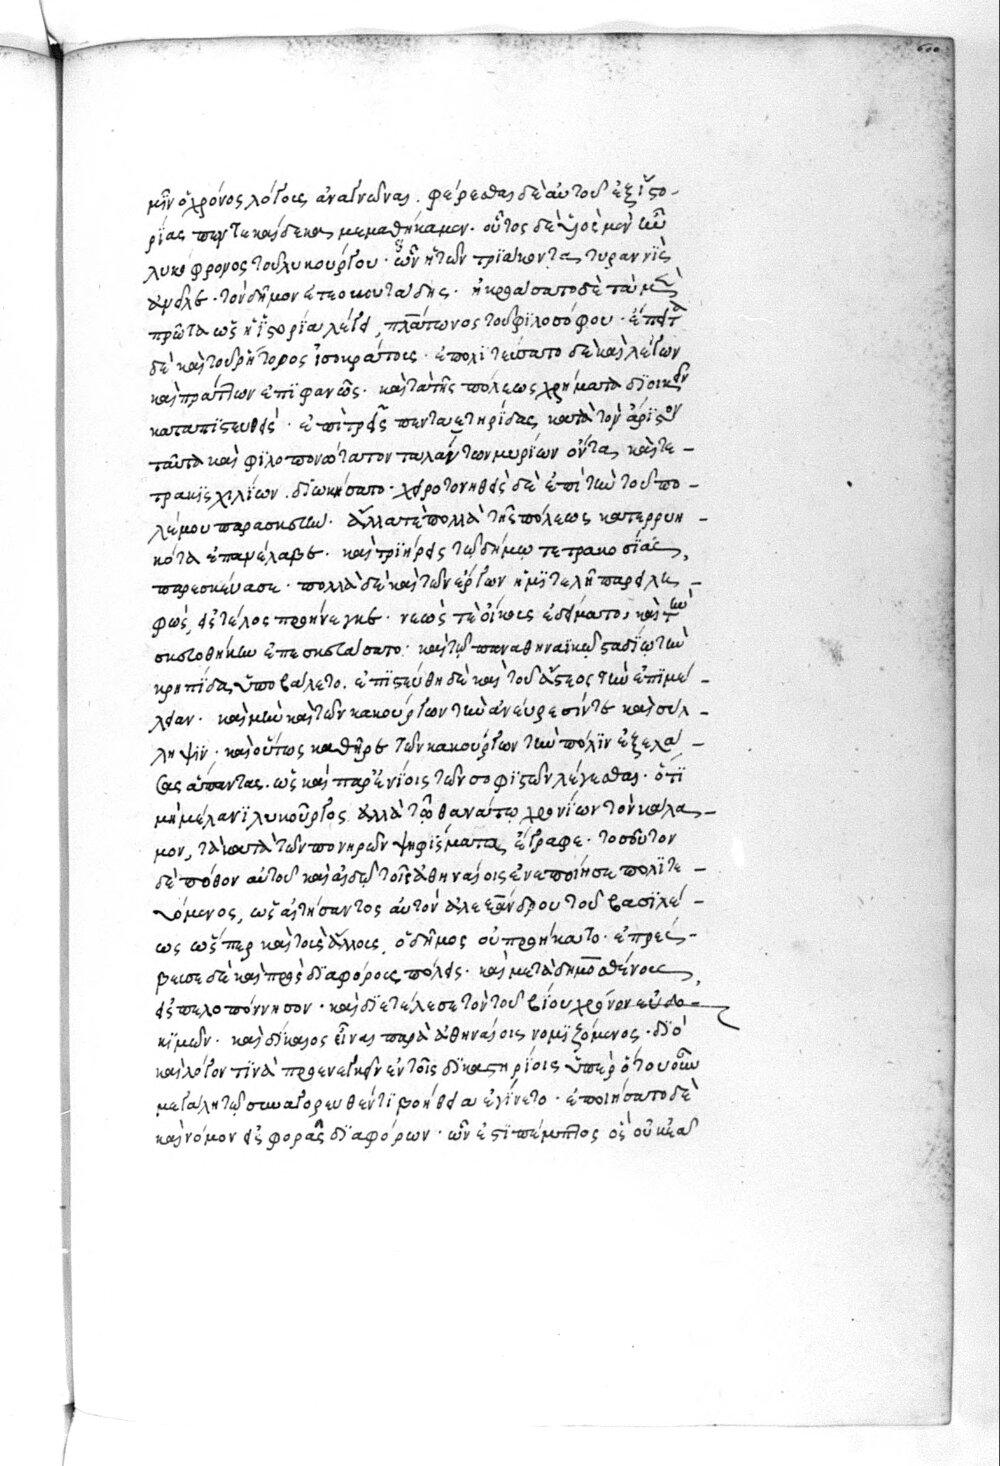 600
μὴν ὁ χρόνος λόγοις ἀναγνῶναι. φέρεσθαι δὲ αὐτοῦ ἐξ ἱστο-
ρίας πεντεκαίδεκα μεμαθήκαμεν. οὗτος δὲ υἱὸς μὲν ἦν
λυκόφρονος τοῦ λυκούργου. ὃν ἡ τῶν τριάκοντα τυραννὶς
ἀνεῖλε. τὸν δῆμον ἐτεοβουτάδης. ἠκροάσατο δὲ τὰ μὲν
πρῶτα ὡς ἡ ἱστορία λέγει, πλάτωνος τοῦ φιλοσόφου. ἔπειτα
δὲ καὶ τοῦ ῥήτορος ἰσοκράτους. ἐπολιτεύσατο δὲ καὶ λέγων
καὶ πράττων ἐπιφανῶς. καὶ τὰ τῆς πόλεως χρήματα διοικεῖν
καταπιστευθεὶς. ἐπὶ τρεῖς πενταετηρίδας κατὰ τὸν ἄριστον
ταῦτα καὶ φιλοπονώτατον ταλάντων μυρίων ὄντα, καὶ τε-
τρακισχιλίων. διῳκήσατο. χειροτονηθεὶς δὲ ἐπὶ τὴν τοῦ πο-
λέμου παρασκευὴν. ἄλλα τε πολλὰ τῆς πόλεως κατερρυη-
κότα ἐπανέλαβε. καὶ τριήρεις τῷ δήμῳ τετρακοσίας,
παρεσκεύασε. πολλὰ δὲ καὶ τῶν ἔργων ἡμιτελῆ παρειλη-
φώς, εἰς τέλος προήνεγκε. νεὼς τε οἴκους ἐδείματο, καὶ τὴν
σκευοθήκην ἐπεσκευάσατο. καὶ τῷ παναθηναϊκῷ σταδίῳ τὴν
κρηπίδα, ὑπεβάλετο. ἐπιστεύθη δὲ καὶ τοῦ ἄστεος τὴν ἐπιμέ-
λειαν. καὶ μὴν καὶ τῶν κακούργων τὴν ἀνεύρεσίν τε καὶ σύλ-
ληψιν. καὶ οὕτως καθῆρε τῶν κακούργων τὴν πόλιν ἐξελά-
σας ἅπαντας. ὡς καὶ παρ' ἐνίοις τῶν σοφιστῶν λέγεσθαι. ὅτι
μὴ μέλανι λυκοῦργος ἀλλὰ τῷ θανάτῳ χρονίων τὸν κάλα-
μον, τὰ κατὰ τῶν πονηρῶν ψηφίσματα, ἔγραφε. τοσοῦτον
δὲ πόθον αὐτοῦ καὶ αἰδῶ τοῖς ἀθηναίοις ἐνεποίησε πολιτευ-
όμενος, ὡς αἰτήσαντος αὐτὸν ἀλεξάνδρου τοῦ βασιλέ-
ως ὥσπερ καὶ τοὺς ἄλλους, ὁ δῆμος οὐ προήκατο. ἐπρέσ-
βευσε δὲ καὶ πρὸς διαφόρους πόλεις. καὶ μετὰ δημοσθένους,
εἰς πελοπόννησον. καὶ διετέλεσε τὸν τοῦ βίου χρόνον εὐδο-
κιμῶν. καὶ δίκαιος εἶναι παρὰ ἀθηναίοις νομιζόμενος. διὸ
καὶ λόγον τινὰ προενεγκεῖν ἐν τοῖς δικαστηρίοις ὑπὲρ ὅτου οὖν
μεγάλη τῷ συναγορευθέντι βοήθεια ἐγίνετο. ἐποιήσατο δὲ
καὶ νόμον εἰσφορὰς διαφόρων. ὧν ἐστι πέμπτος ὃς οὐκ ἐᾷ